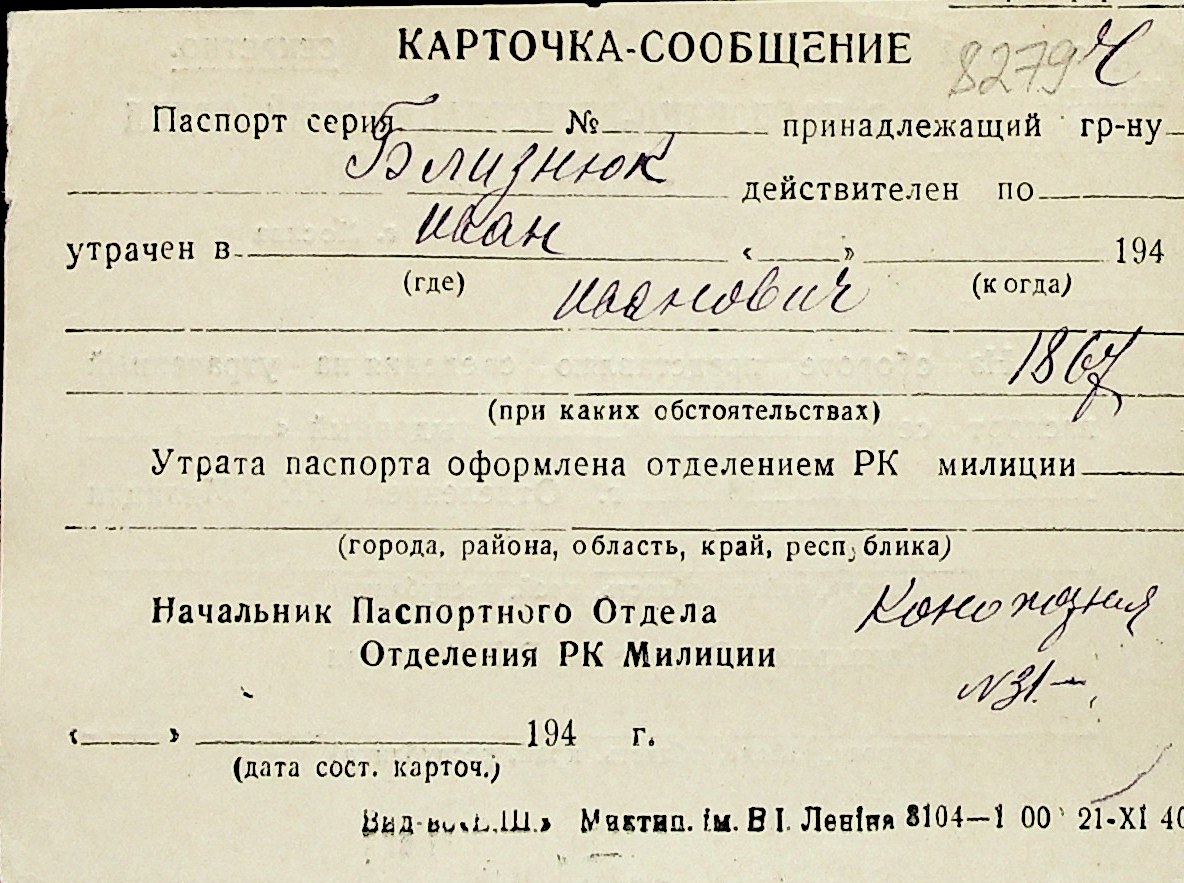 КАРТОЧКА-СООБЩЕНИЕ 8279
Паспорт серия № принадлежащий гр-ну
Близнюк действителен по
утрачен в Иван « » 194
(где) Иванович (когда)
1867
(при каких обстоятельствах)
Утрата паспорта оформлена отделением РК милиции
(города, района, область, край, республика)
Начальник Паспортного Отдела
Отделения РК Милиции
№31-
« » 194 г.
(дата сост. карточ.)
Миктип. ім. В І. Леніна 8104—1 00 21-XI 40